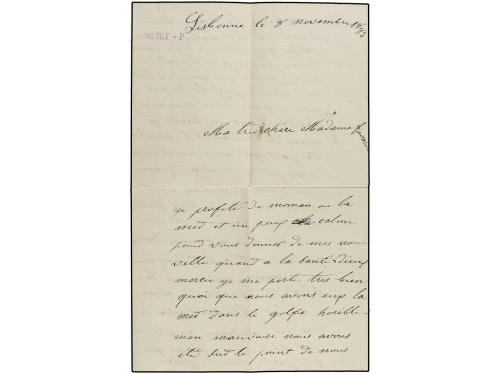 Lisbonne le 8 novembre 1893
Ma tres chere Madame
je profite de moman ou la
mer et un peux calme
pour vous donner de mes nou
ville quand a la santé dieux
mercie je me porte tres bien
quoi que nous avons eux la
mer dans le golfe horible-
man mauvaise nous avons
été sur le point de nous